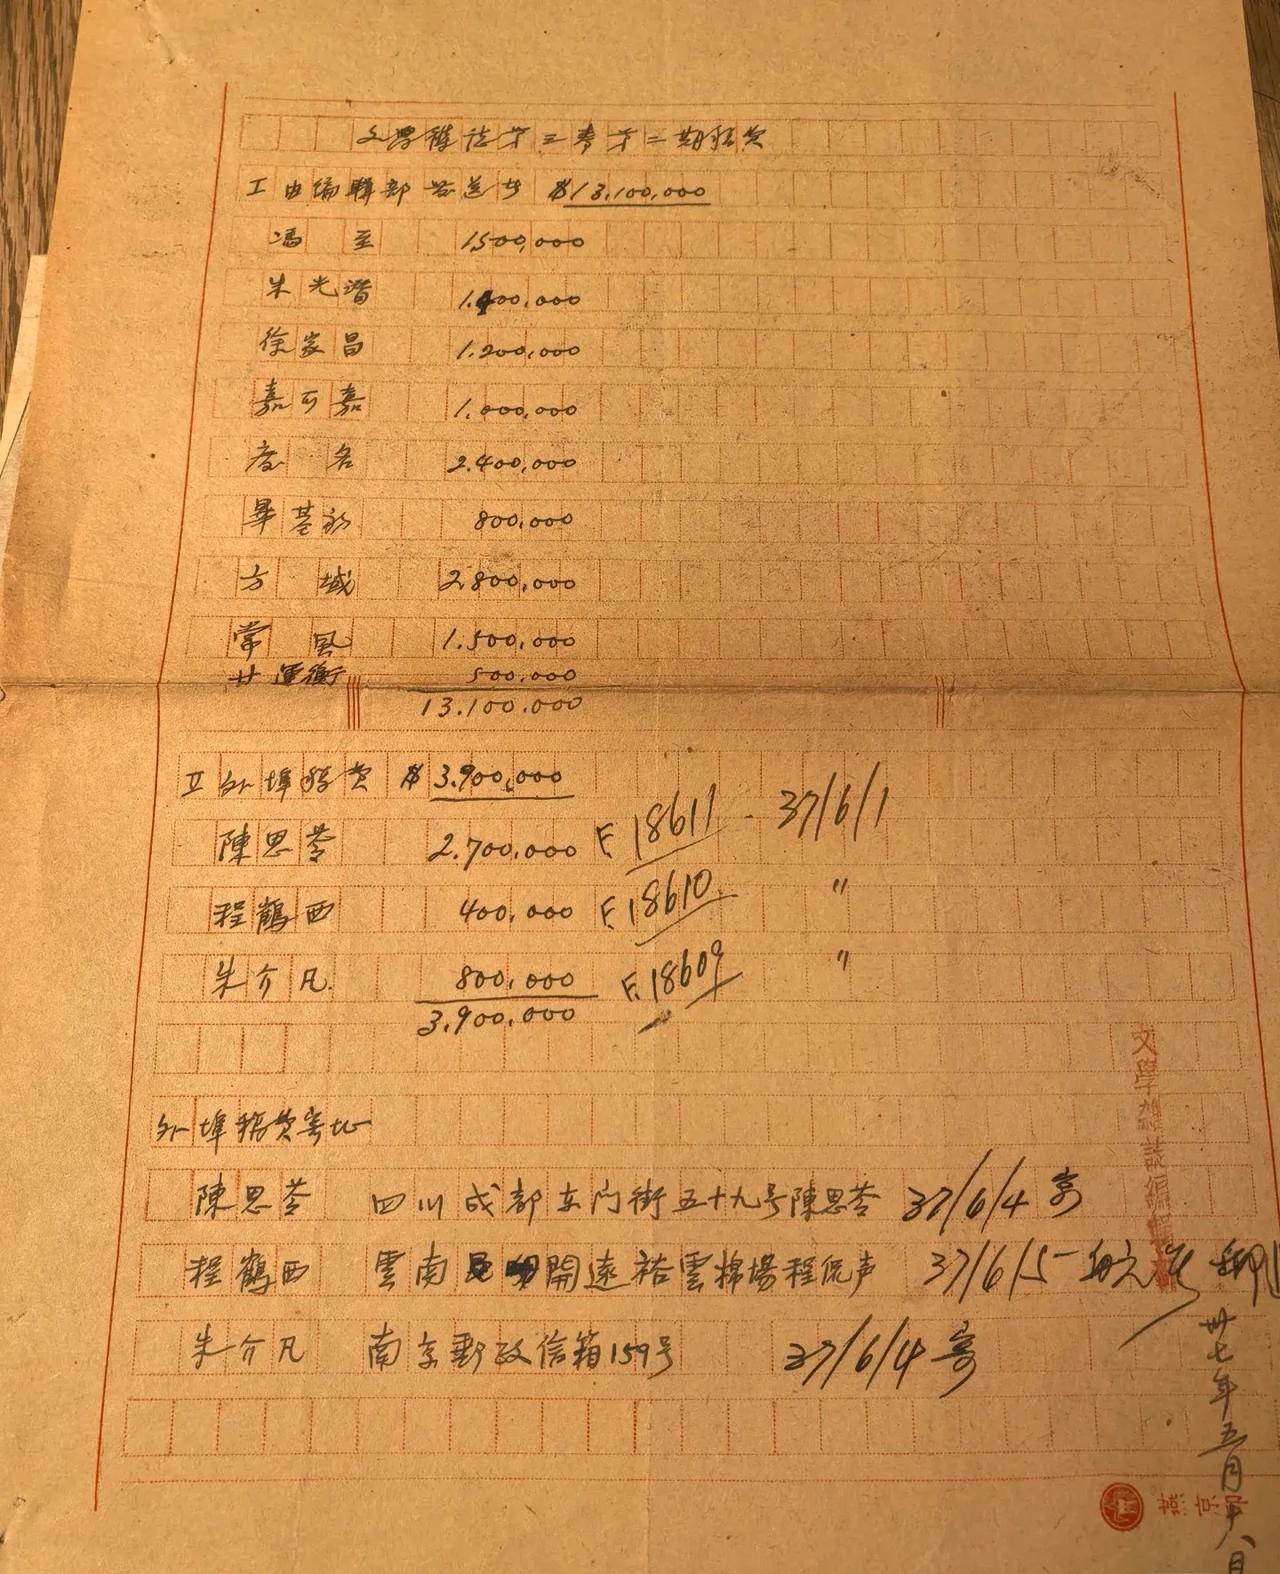 文學雜誌第三卷第二期稿費
I 由編輯部發送者 $13,100,000
馮至 1,500,000
朱光潛 1.400,000
徐家昌 1.200,000
嘉可嘉 1.000,000
廢名 2.400,000
畢基初 800,000
方城 2.800,000
常風 1.500,000
廿運衡 500,000
13.100.000
II 外埠稿費 $3.900,000
陳思苓 2.700,000 F.18611 - 37/6/1
程鶴西 400,000 F.18610. 〃
朱介凡. 800,000 F.18609 〃
3.900,000
外埠稿費寄址
陳思苓 四川成都东门街五十九号陳思苓 37/6/4 寄
程鶴西 雲南開遠裕雲棉場程侃声 37/6/5
朱介凡 南京郵政信箱159号 37/6/4 寄
文學雜誌編輯
卅七年五月十八日
燕京